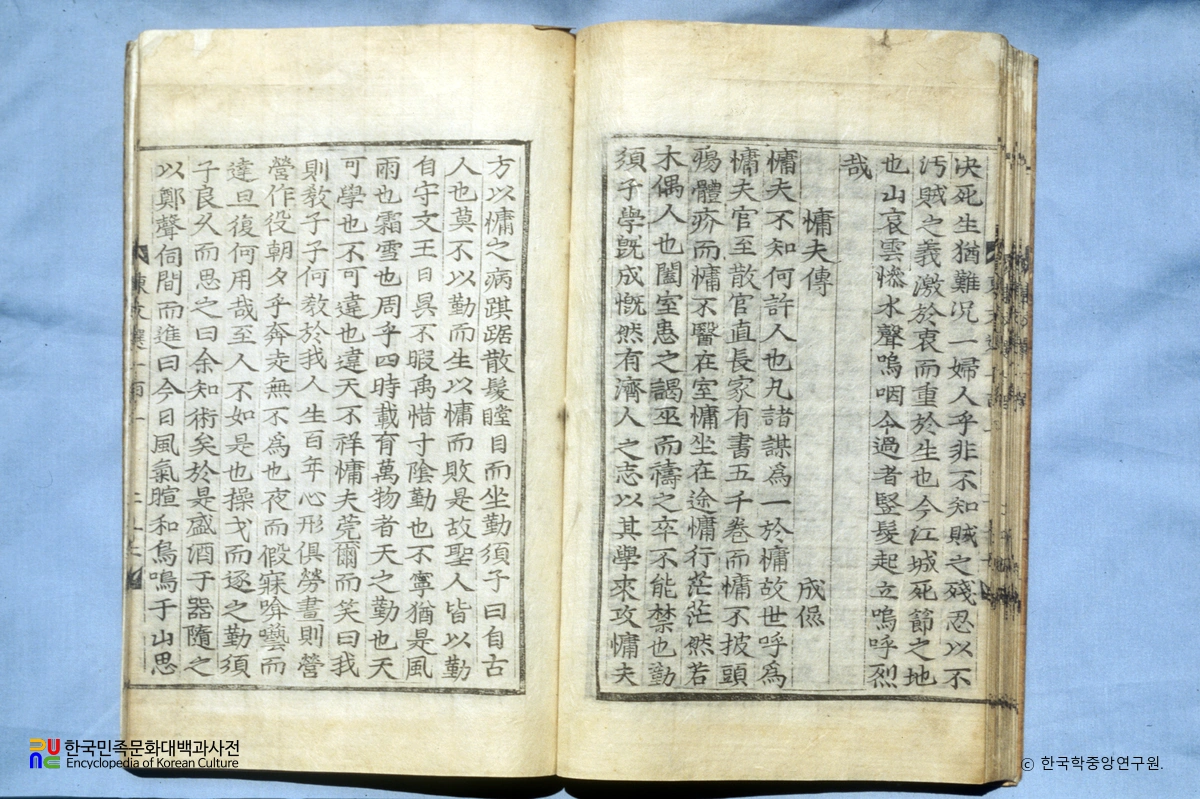 决死生猶難况一婦人乎非不知賊之殘忍以不
汚賊之義激於衷而重於生也今江城死節之地
也山哀雲惨水聲嗚咽今過者竪髮起立嗚呼烈
哉
慵夫傳 成俔
慵夫不知何許人也凡諸謀為一於慵故世呼為
慵夫官至散官直長家有書五千卷而慵不披頭
瘍體疥而慵不醫在室慵坐在途慵行茫茫然若
木偶人也闔室患之謁巫而禱之卒不能禁也勤
須子學旣成慨然有濟人之志以其學來攻慵夫
方以慵之病踑踞散髮瞠目而坐勤須子曰自古
人也莫不以勤而生以慵而敗是故聖人皆以勤
自守文王日昃不暇禹惜寸陰勤也不寧猶是風
雨也霜雪也周乎四時載育萬物者天之勤也天
可學也不可違也違天不祥慵夫莞爾而笑曰我
則敎子子何敎於我人生百年心形俱勞晝則營
營作役朝夕乎奔走無不為也夜而假寐啽囈而
達旦復何用哉至人不如是也操戈而逐之勤須
子良久而思之曰余知術矣於是盛酒于器隨之
以鄭聲伺間而進曰今日風氣暄和鳥鳴于山思
東文選一百一
한국민족문화대백과사전
Encyclopedia of Korean Culture
© 한국학중앙연구원.